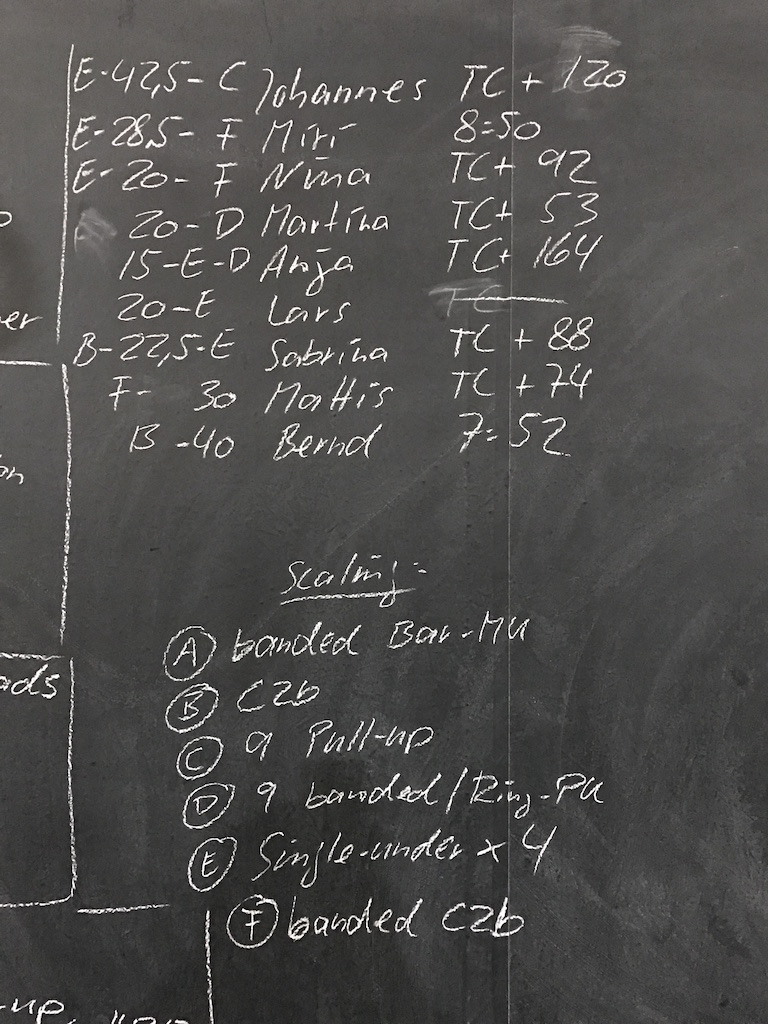 E-42,5-C Johannes TC + 120
E-28,5- F Miri 8:50
E-20- F Nina TC+ 92
20-D Martina TC+ 53
15-E-D Anja TC+ 164
20-E Lars TC
B-22,5-E Sabrina TC + 88
F- 30 Mattis TC +74
B -40 Bernd 7:52
er
on
ods
Scaling:
A banded Bar-MU
B C2b
C 9 Pull-up
D 9 banded/Ring-PU
E Single-under x 4
F banded C2b
-up